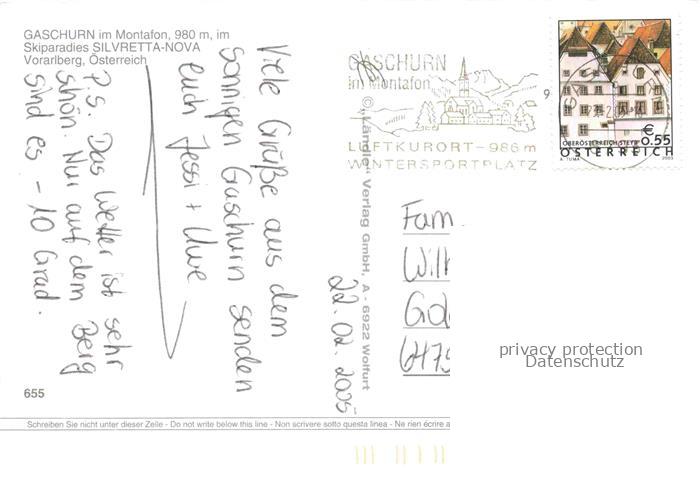 GASCHURN im Montafon, 980 m, im
Skiparadies SILVRETTA-NOVA
Vorarlberg, Österreich
Viele Grüße aus dem
sonnigen Gaschurn senden
euch Jessi + Uwe
P.S. Das Wetter ist sehr
schön. Nur auf dem Berg
sind es - 10 Grad.
22.02.2005
655
© "Ländle" Verlag GmbH, A - 6922 Wolfurt
GASCHURN
im Montafon
LUFTKURORT-986m
WINTERSPORTPLATZ
€ 0.55
OBERÖSTERREICH/STEYR
ÖSTERREICH
A. TUMA 2003
Fam
6475
privacy protection
Datenschutz
Schreiben Sie nicht unter dieser Zeile - Do not write below this line - Non scrivere sotto questa linea - Ne rien écrire a